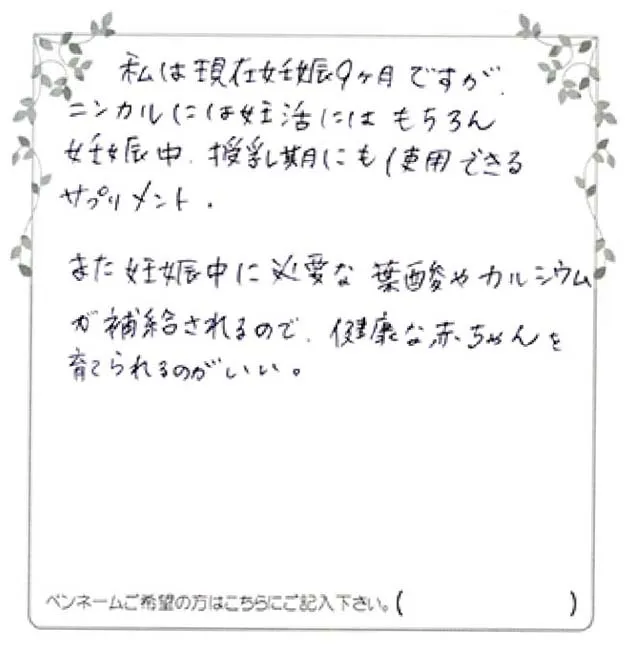 私は現在妊娠9ヶ月ですが、
ニンカルには妊活にはもちろん
妊娠中、授乳期にも使用できる
サプリメント。
また妊娠中に必要な葉酸やカルシウム
が補給されるので、健康な赤ちゃんを
育てられるのがいい。
ペンネームご希望の方はこちらにご記入下さい。(　　　　　)